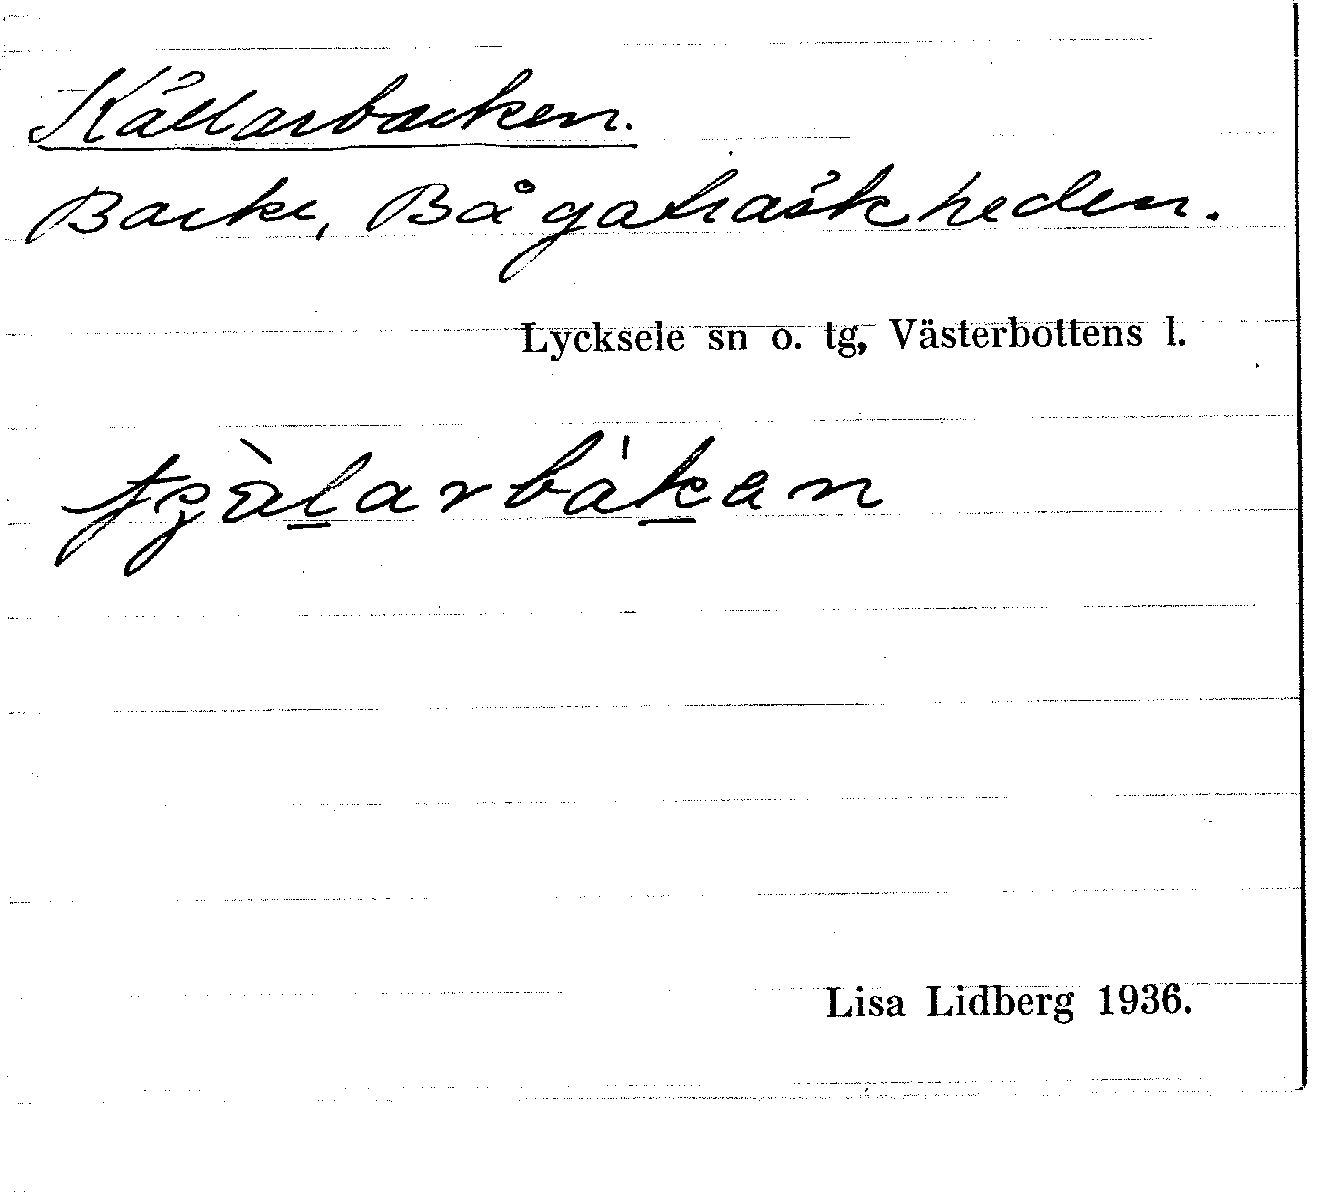 Källarbacken.
Backe, Bågaträskheden.
Lycksele sn o. tg, Västerbottens l.
Lisa Lidberg 1936.